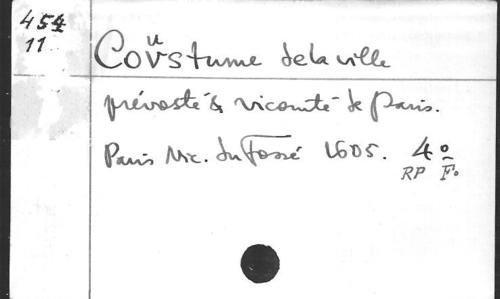 454
11
Coustume de la ville
prévosté & vicomté de Paris.
Paris Nic. du Fossé 1605. 4º
RP Fº